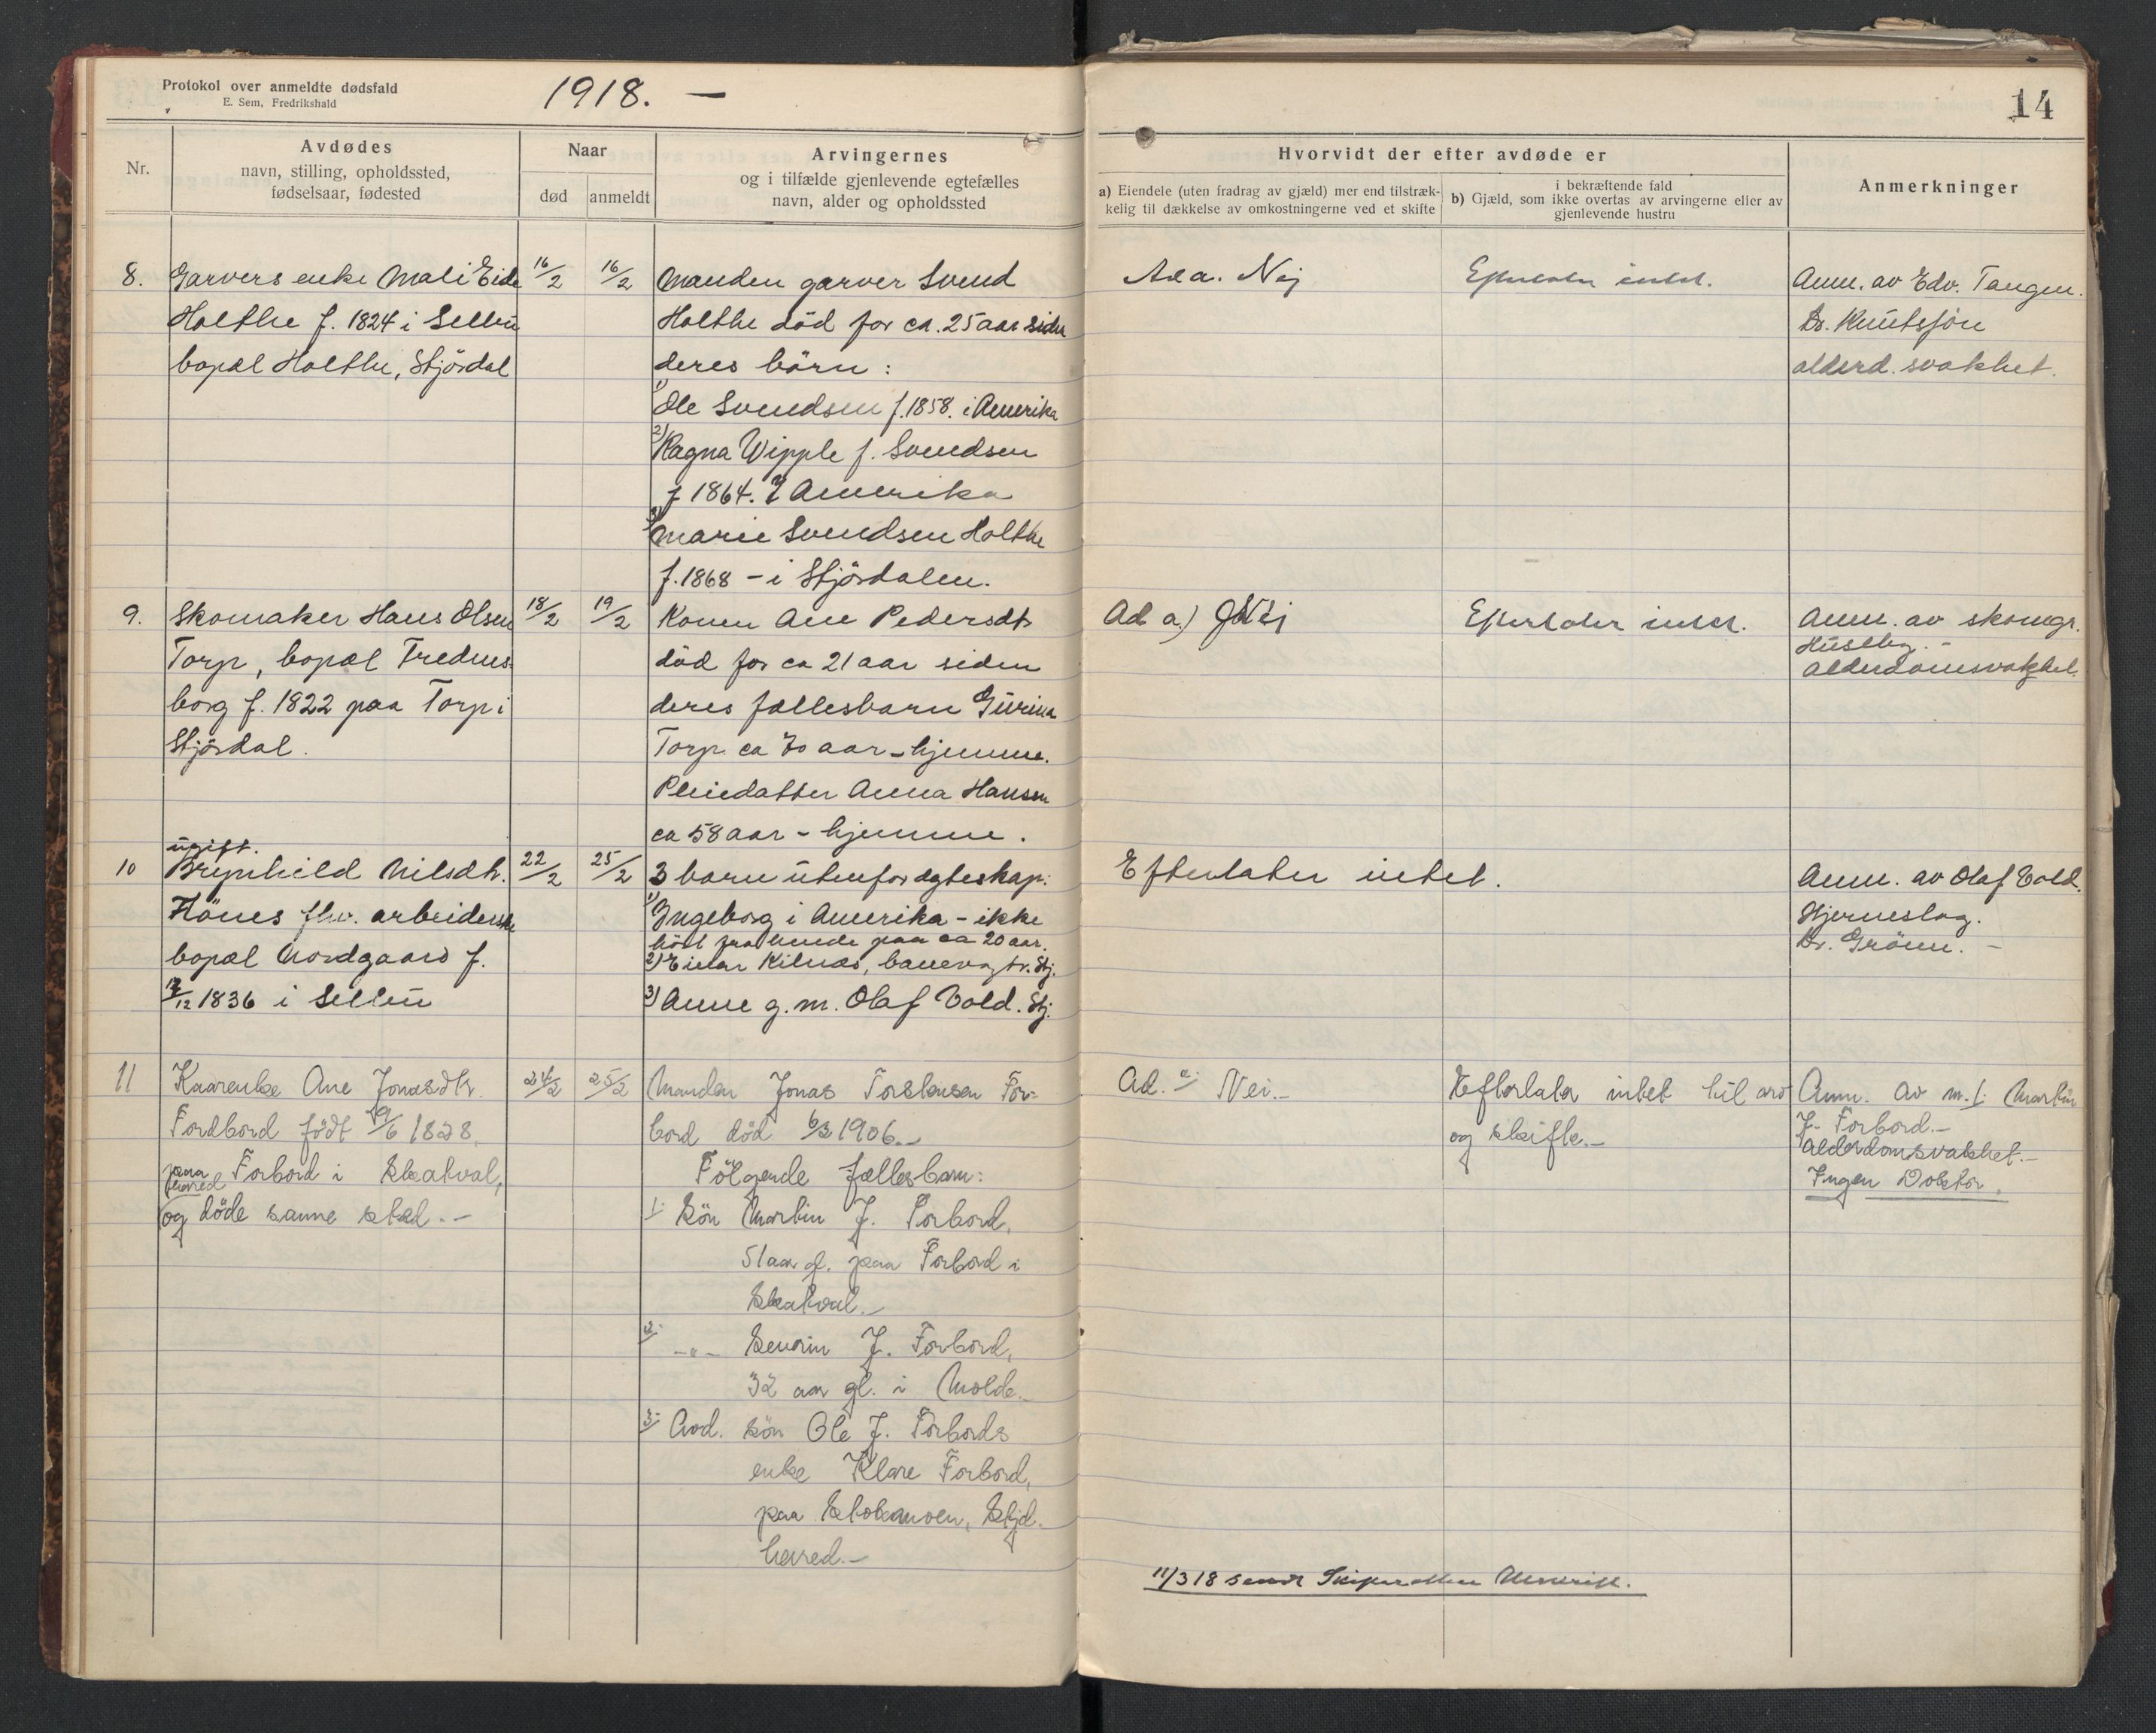 Protokol over anmeldte dødsfald
E. Sem, Fredrikshald
1918. —
14
Nr.
Avdødes
navn, stilling, opholdssted,
fødselsaar, fødested
Naar
død
anmeldt
Arvingernes
og i tilfælde gjenlevende egtefælles
navn, alder og opholdssted
Hvorvidt der efter avdøde er
a) Eiendele (uten fradrag av gjæld) mer end tilstræk-
kelig til dækkelse av omkostningerne ved et skifte
i bekræftende fald
b) Gjæld, som ikke overtas av arvingerne eller av
gjenlevende hustru
Anmerkninger
8.
Garvers enke Mali Eide
Holthe f. 1824 i Selbu
bopæl Holthe, Stjördal
16/2
16/2
Manden garver Svend
Holthe död for ca. 25 aar siden
deres börn:
1) Ole Svendsen f. 1858. i Amerika
2) Ragna Wipple f. Svendsen
f 1864. i Amerika
3) Marie Svendsen Holthe
f. 1868 – i Stjördalen.
Ad a. Nej
Efterlater intet.
Anm. av Edv. Tangen.
Dr. Knutsjön
alderd. svakhet.
9.
Skomaker Hans Olsen
Torp, bopæl Fredens
borg f. 1822 paa Torp i
Stjördal.
18/2
19/2
Konen Ane Pedersdt
död for ca 21 aar siden
deres fællesbarn Gurina
Torp ca 70 aar – hjemme.
Pleiedatter Anna Hansen
ca 58 aar – hjemme.
Ad a.) Nei
Efterlater intet.
Anm. av skomgr.
Husby. –
alderdomsvakhet.
10
ugift.
Brynhild Nilsdtr.
Hönes fhv. arbeiderske
bopæl Nordgaard f.
/12 1836 i Selbu
22/2
25/2
3 barn utenfor ægteskap:
1) Ingeborg i Amerika – ikke
hört fra hende paa ca 20 aar.
2) Einar Kilnæs, banevogtr. Stj.
3) Anne g. m. Olaf Vold. Stj.
Efterlater intet.
Anm. av Olaf Vold.
Hjerneslag.
Dr. Grönn. –
11
Kaarenke Ane Jonasdtr.
Fordbord födt 19/6 1828,
paa Forbord i Skatval,
herred
og döde samme sted. –
24/2
25/2
Manden Jonas Torstensen For-
bord död 6/3 1906. –
Fölgende fællesbarn:
1- Sön Martin J. Forbord,
51 aar gl. paa Forbord i
Skatval. –
2- –"– Sevrin J. Forbord,
32 aar gl. i Molde. –
3- Avd. sön Ole J. Forbords
enke Klare Forbord,
paa Stokmoen, Stjd.
herred. –
Ad. a- Nei. –
Efterlater intet til arv
og skifte. –
Anm. av m. 1- Martin
J. Forbord. –
Alderdomsvakhet. –
Ingen Doktor.
11/3 18 sendt Skifteretten Utskrift.